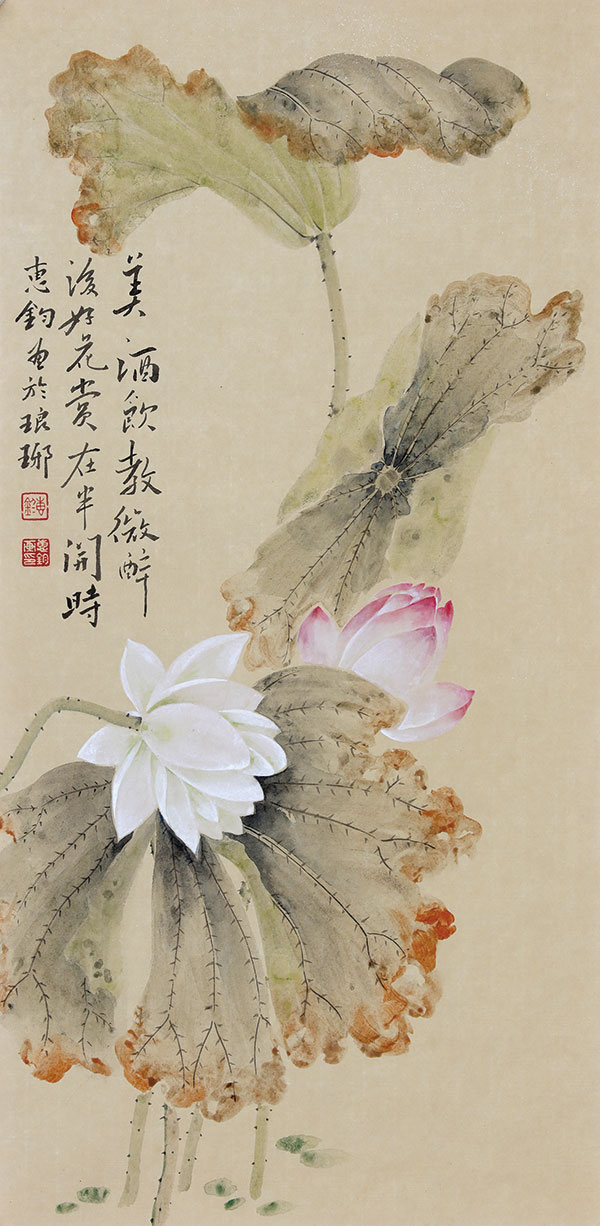 美酒飲教微醉
後好花賞在半開時
惠鈞画於琅琊